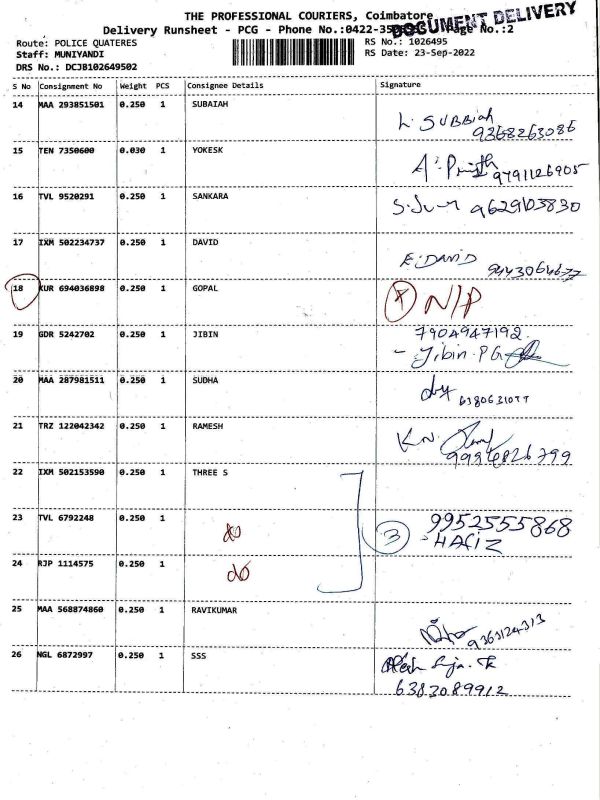 THE PROFESSIONAL COURIERS, Coimbatore
DOCUMENT DELIVERY
Delivery Runsheet - PCG - Phone No.:0422-35 Page No.:2
Route: POLICE QUATERES
RS No.: 1026495
Staff: MUNIYANDI
RS Date: 23-Sep-2022
DRS No.: DCJB102649502
S No Consignment No Weight PCS Consignee Details Signature
14 MAA 293851501 0.250 1 SUBAIAH
L. SUBBIAH
9368263086
15 TEN 7350600 0.030 1 YOKESK
9791126905
16 TVL 9520291 0.250 1 SANKARA
9629103830
17 IXM 502234737 0.250 1 DAVID
E. DAVID 9443064677
18 KUR 694036898 0.250 1 GOPAL
N/P
19 GDR 5242702 0.250 1 JIBIN
7904947192
- Jibin.P.G
20 MAA 287981511 0.250 1 SUDHA
21 TRZ 122042342 0.250 1 RAMESH
K.N.
9994826799
22 IXM 502153590 0.250 1 THREE S
23 TVL 6792248 0.250 1 do
3 9952555868
- HAFIZ
24 RJP 1114575 0.250 1 do
25 MAA 568874860 0.250 1 RAVIKUMAR
9363124313
26 NGL 6872997 0.250 1 SSS
6383089912